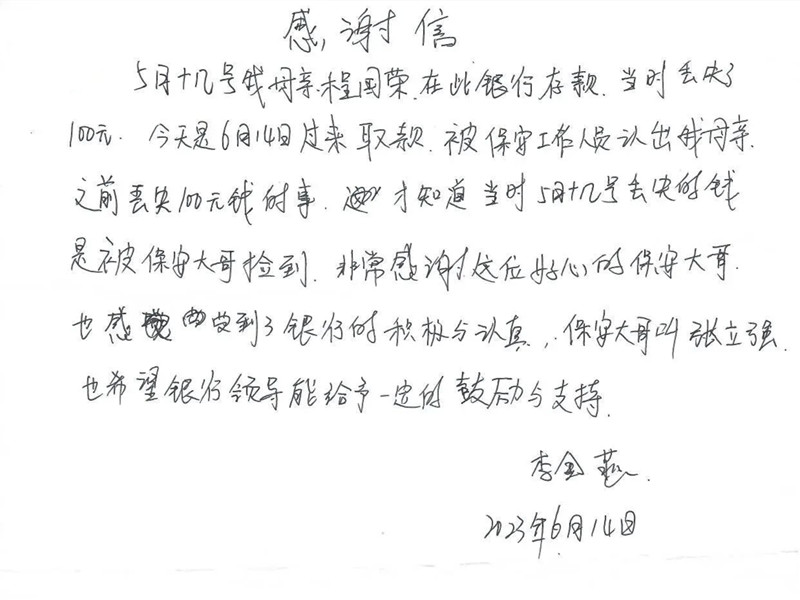 感谢信
5月十几号我母亲程国荣在此银行存款.当时丢失了
100元.今天是6月14日过来取款.被保安工作人员认出我母亲.
之前丢失100元钱的事.才知道当时5月十几号丢失的钱
是被保安大哥捡到.非常感谢这位好心的保安大哥.
也感受到了银行的积极与认真,.保安大哥叫张立强.
也希望银行领导能给予一定的鼓励与支持.
李金燕.
2023年6月14日